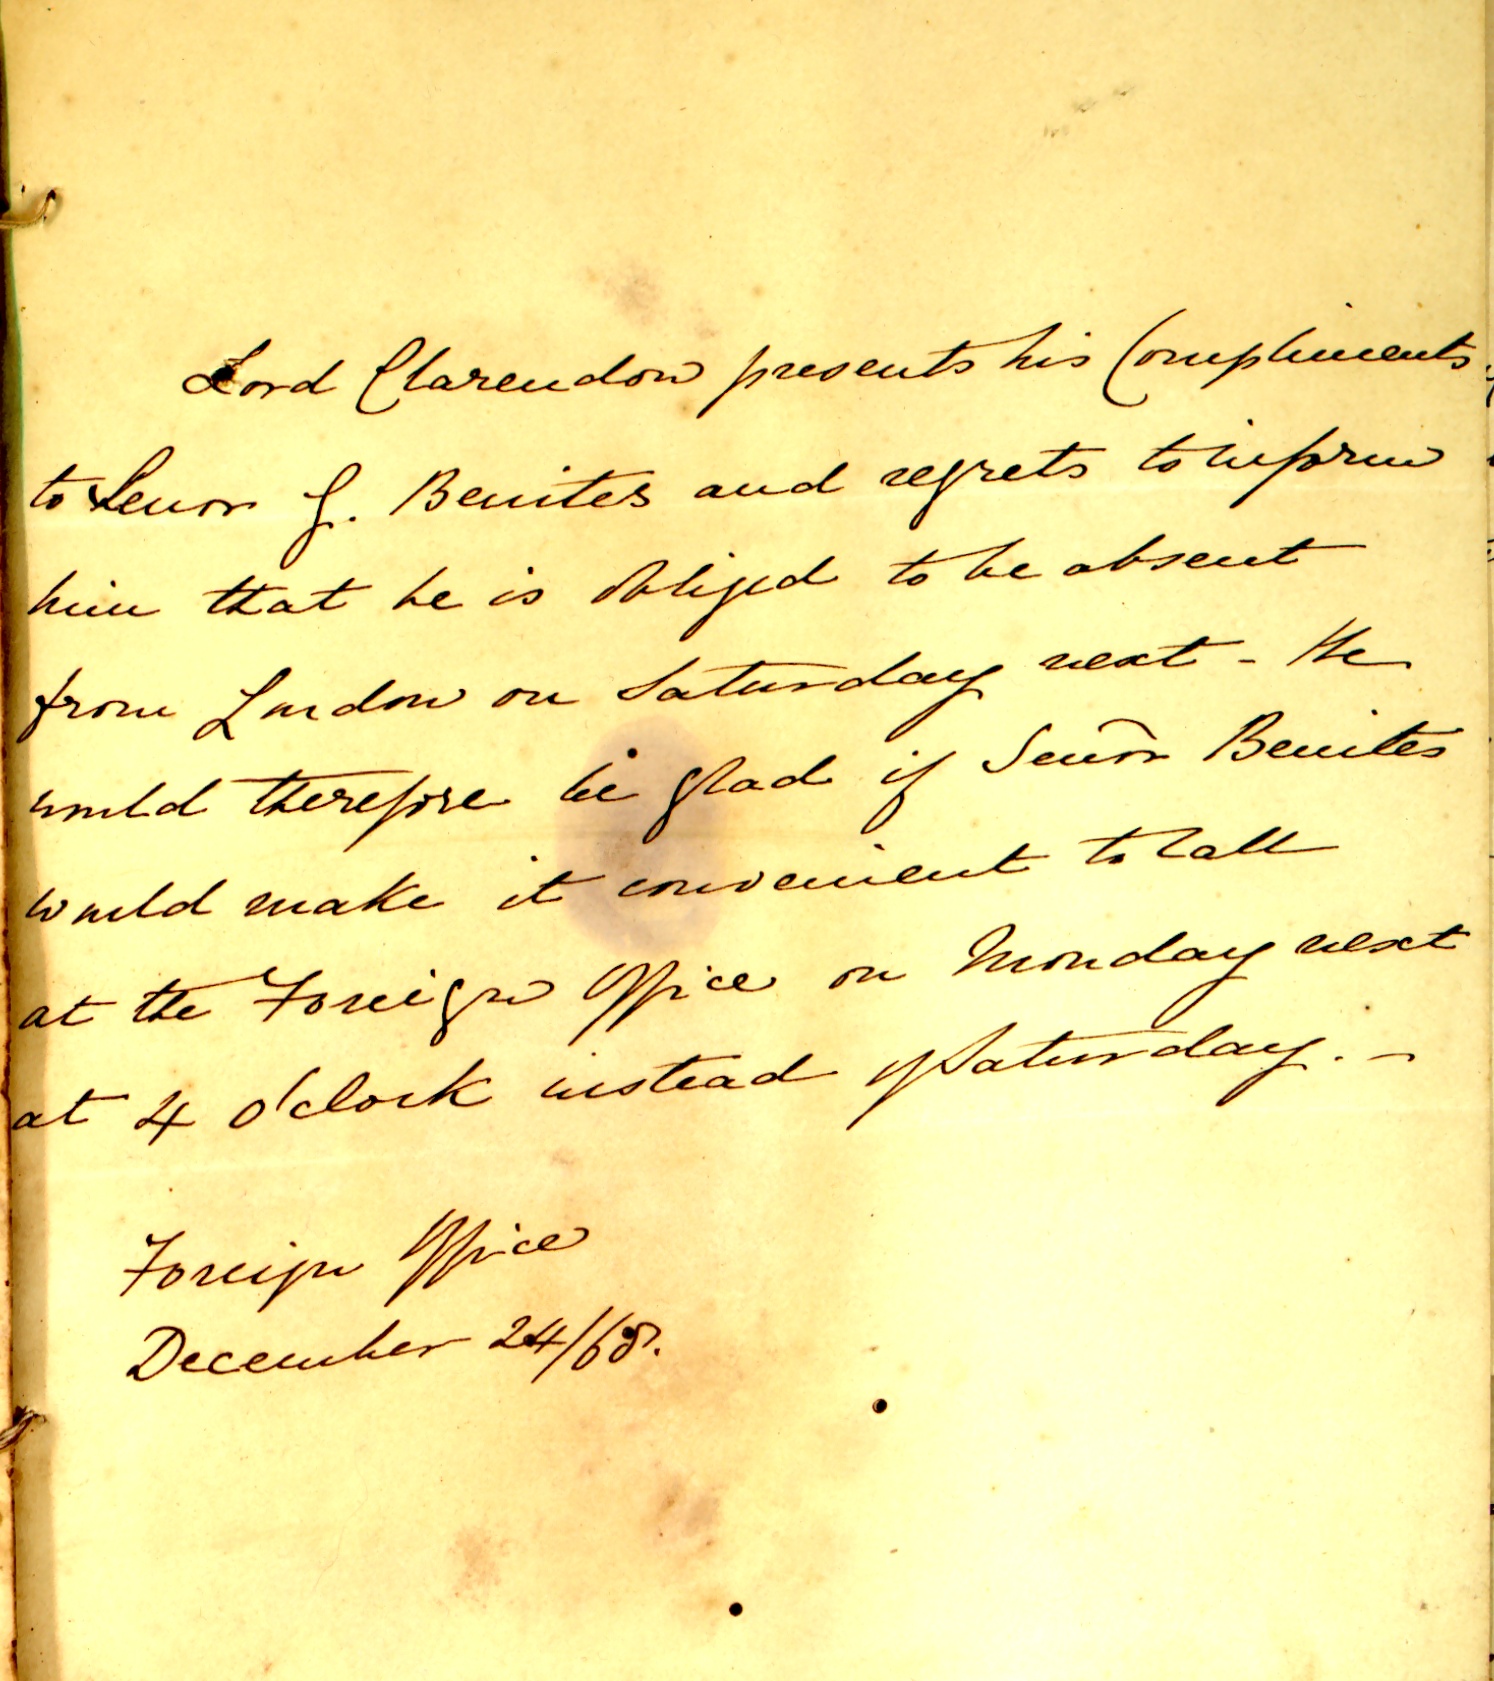 Lord Clarendon presents his Compliments
to Senor G. Benites and regrets to inform
him that he is obliged to be absent
from London on Saturday next - He
would therefore be glad if Señor Benites
would make it convenient to call
at the Foreign Office on Monday next
at 4 o'clock instead of Saturday. -
Foreign Office
December 24/68.